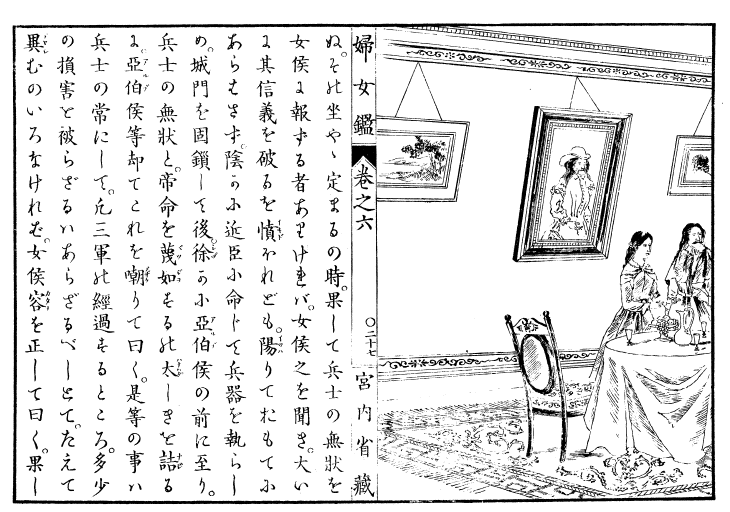 婦女鑑 卷之六 〇二十七 宮內省藏
ぬ。その坐やゝ定まるの時。果して兵士の無狀を
女侯に報ずる者ありければ。女侯之を聞き。大い
に其信義を破るを憤ほれども。陽りておもてに
あらはさず。陰かに近臣に命じて兵器を執らし
め。城門を固鎖して後徐かに亞伯侯の前に至り。
兵士の無狀と。帝命を蔑如するの太しきを詰る
に亞伯侯等却てこれを嘲りて曰く。是等の事ハ
兵士の常にして。凡三軍の經過するところ。多少
の損害を被らざるハあらざるべしとて。たえて
異むのいろなければ。女侯容を正して曰く。果し